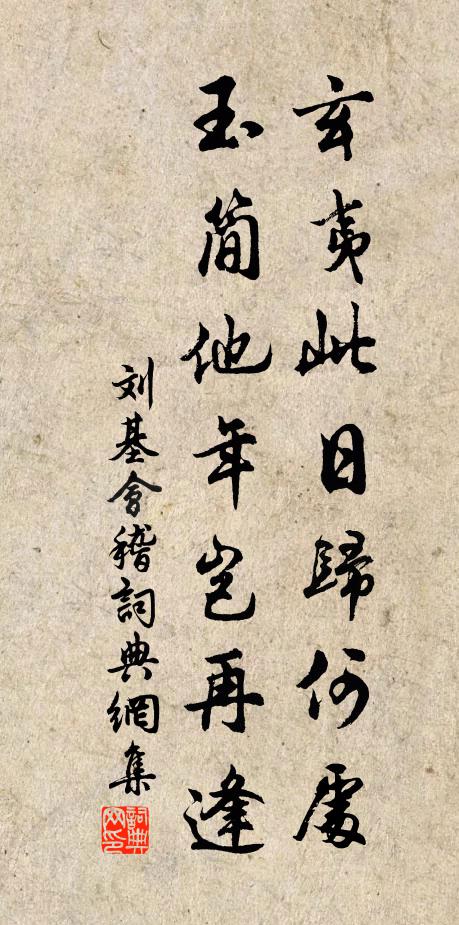 玄夷此日歸何處
玉簡他年豈再逢
刘基會稽詞典網集
詞典網印